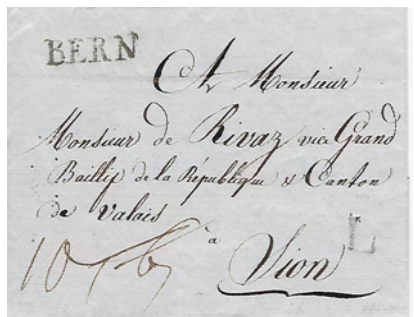 BERN
A Monsieur
Monsieur de Rivaz vice Grand
Baillif de la République & Canton
de Valais
à
Sion
L